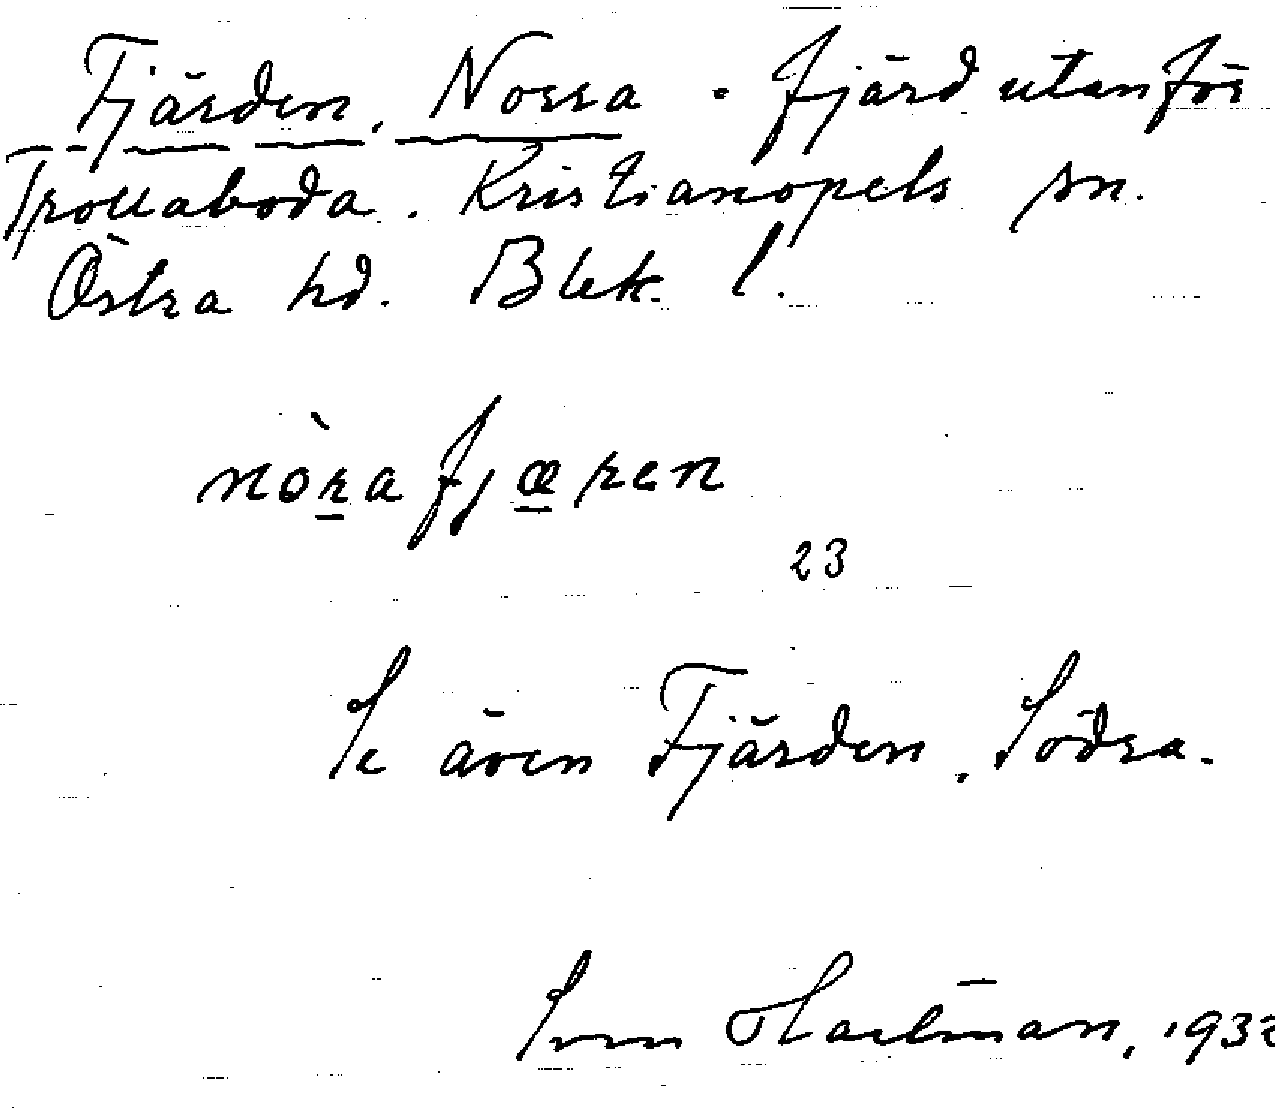 Fjärden, Norra. Fjärd utanför
Trollaboda. Kristianopels sn.
Östra hd. Blek. l.
nòra fjæren
23
Se även Fjärden, Södra.
Sven Hartman, 1932